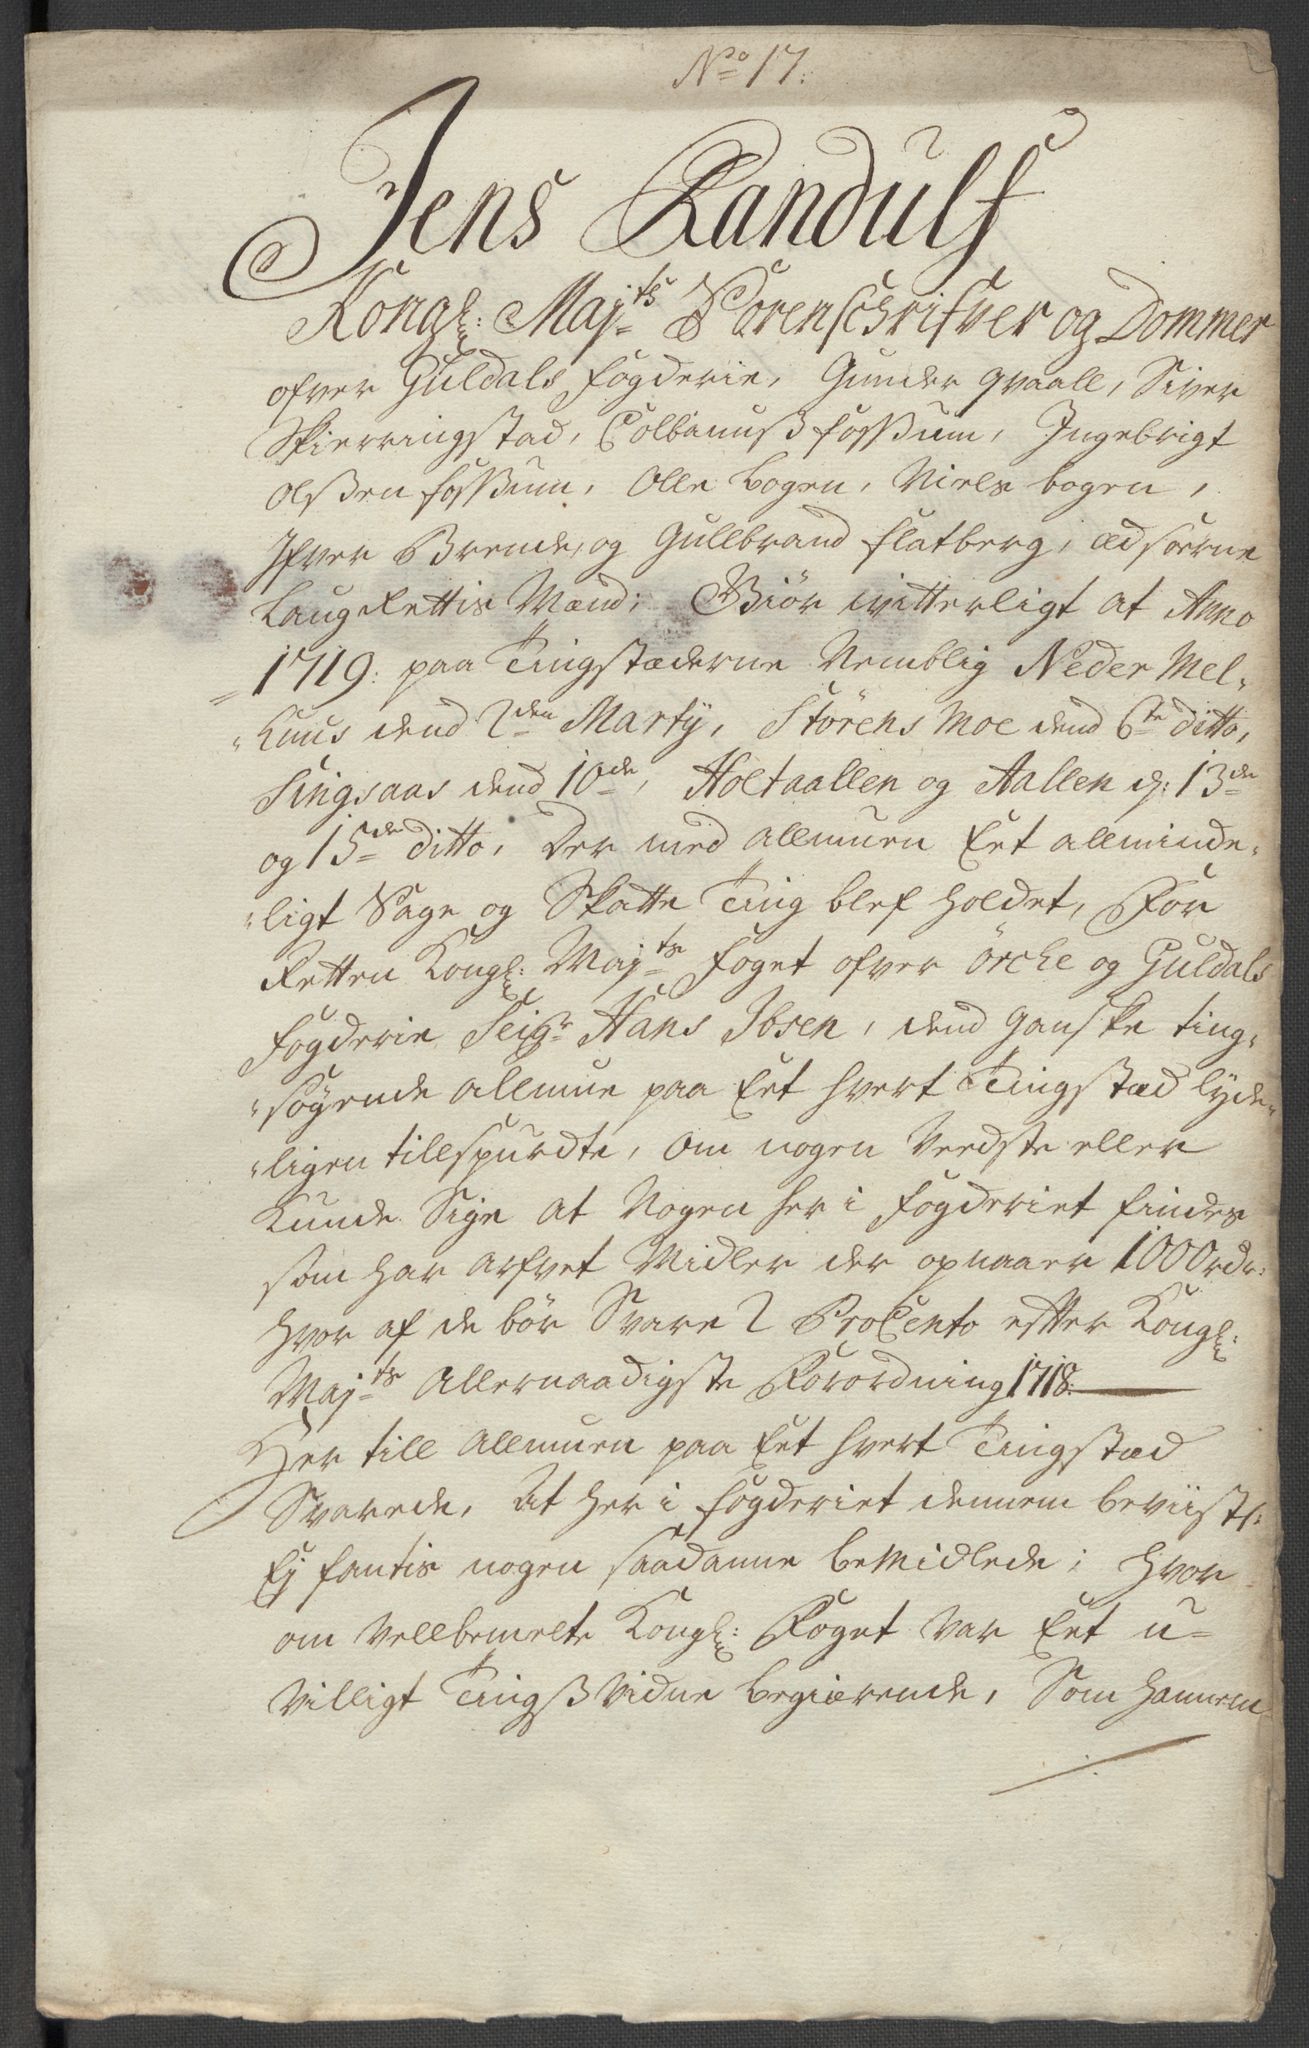 No 17.
Jens Randulf
Kongl: Majts Sorenschrifver og Dommer
ofver Guldals fogderie, Gunder qvaall, Siver
Skierringstad, Colbanuß foßum, Ingebrigt
olßen foßum, Olle bogen, Niels bogen,
Ifver Brende, og Gullbrand flatberg, Ædsorne
LaugRettis Mænd; Giör witterligt at Anno
1719: paa Tingstæderne Nemblig Neder Mel-
huus dend 2den Marty, Störens Moe dend 6te ditto,
Singsaas dend 10de, Holtaallen og Aallen d: 13de
og 15de ditto, Der med Allmuen Eet allminde-
ligt Sage og Skatte Ting blef holdet, For
Retten Kongl: Majts foget ofver örche og Guldals
fogderie Seigr Hans Ibsen, dend gandske ting-
söyende Allmue paa Eet hvert Tingstæd lyde-
ligen tillspurdte, om nogen Veedste eller
Kunde Sige at Nogen her i fogderiet findes
som har arfvet Midler der opnaaer 1000 rdr:
hvor af de bör Svare 2 ProCento efter Kongl:
Majts Allernaadigste Forordning 1718.
Her till Allmuen paa Eet hvert Tingstæd
Svarede, At her i fogderiet dennem beviist:
Ej fantis nogen saadanne beMidlede; hvor
om Vellbemelte Kongl: Foget var Eet u-
villigt TingsVidne begiærende, Som hannem